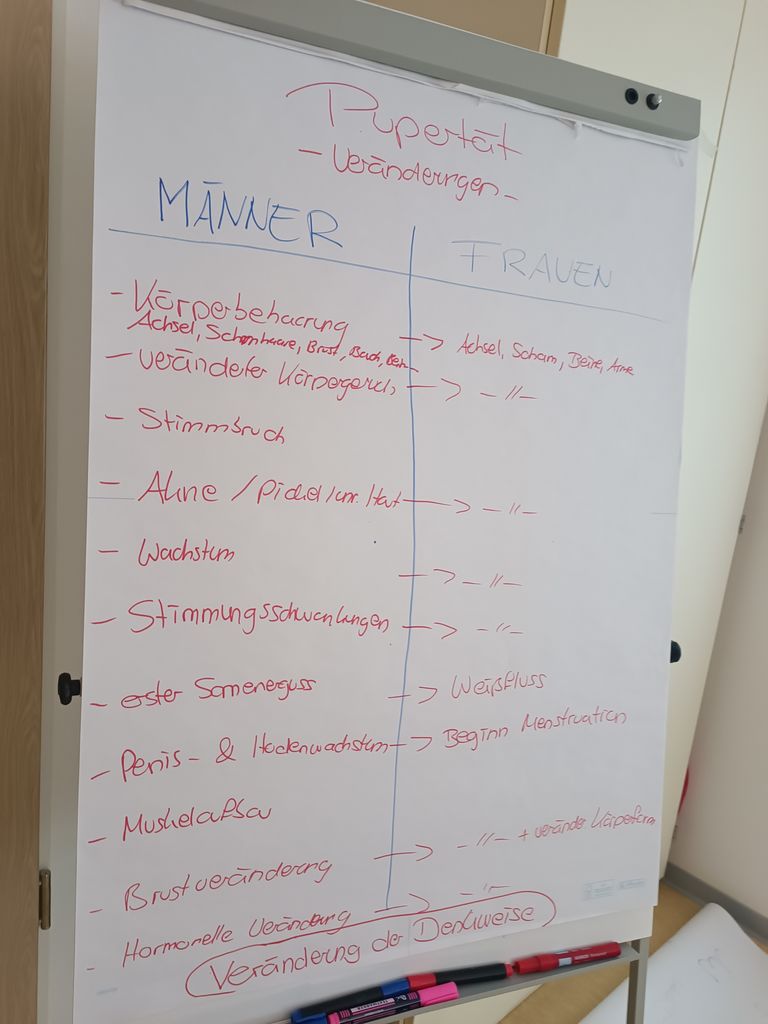 Pupertät
- Veränderrgen -
MÄNNER
FRAUEN
- Körperbehaarung
Achsel, Schamhaare, Brust, Bauch, Bein
-> Achsel, Scham, Beine, Arme
- veränderter Körpergeruch -> - 〃 -
- Stimmbruch
- Akne / Pickel / unr. Haut -> - 〃 -
- Wachstum -> - 〃 -
- Stimmungsschwankungen -> - 〃 -
- erster Samenerguss -> Weißfluss
- Penis- & Hodenwachstum -> Beginn Menstruation
- Muskelaufbau
- Brustveränderung -> - 〃 - + veränder Körperform
- Hormonelle Veränderung -> - 〃 -
Veränderung der Denkweise